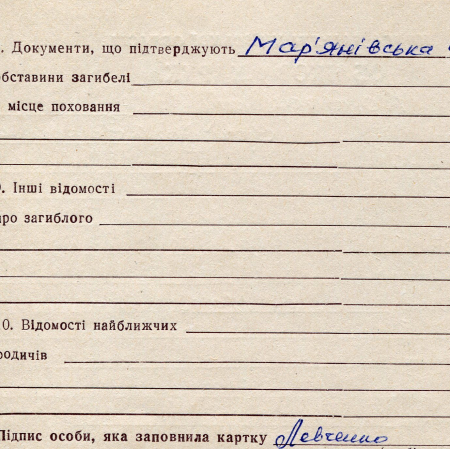 . Документи, що підтверджують Мар'янівська
обставини загибелі
місце поховання
. Інші відомості
про загиблого
0. Відомості найближчих
родичів
Підпис особи, яка заповнила картку Левченко